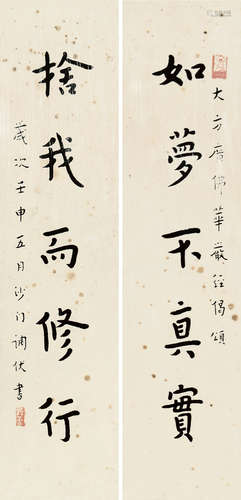 大方廣佛華嚴經偈頌
如夢不真實
捨我而修行
歲次壬申五月沙门調伏書